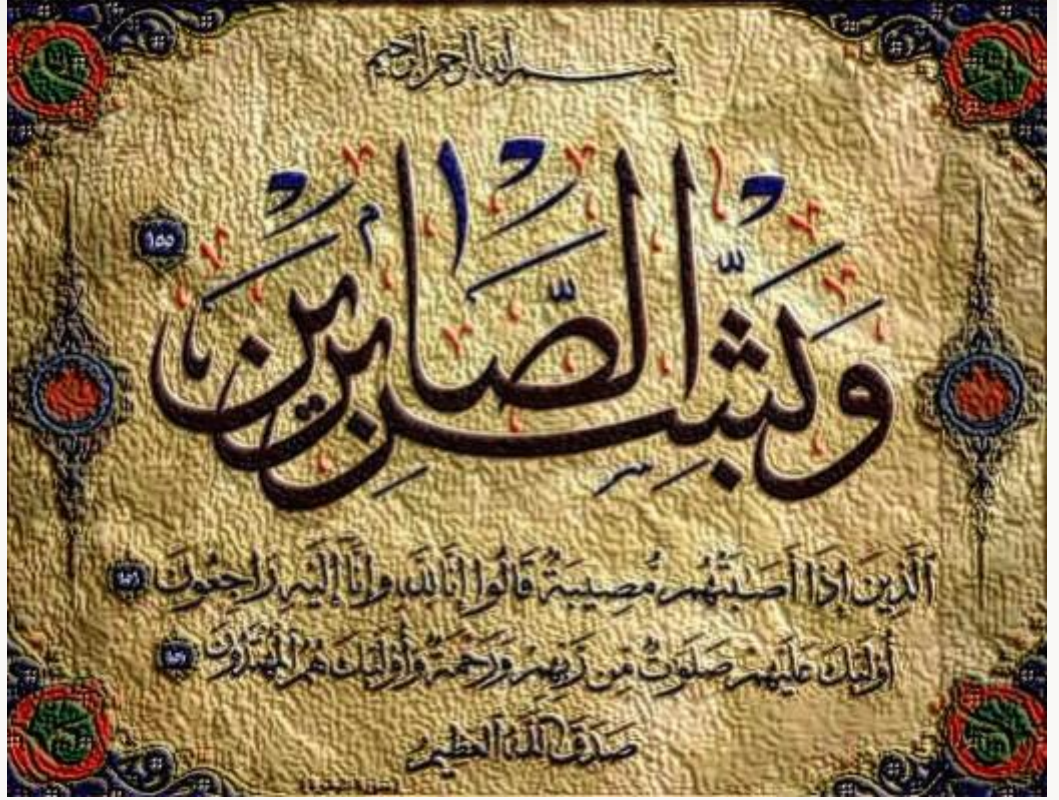 بسم الله الرحمن الرحيم
وَبَشِّرِ الصَّابِرِينَ ١٥٥
ٱلَّذِينَ إِذَا أَصَٰبَتْهُم مُّصِيبَةٌ قَالُوا إِنَّا لِلَّهِ وَإِنَّا إِلَيْهِ رَاجِعُونَ ١٥٦
أُولَٰئِكَ عَلَيْهِمْ صَلَوَٰتٌ مِّن رَّبِّهِمْ وَرَحْمَةٌ وَأُولَٰئِكَ هُمُ ٱلْمُهْتَدُونَ ١٥٧
صَدَقَ اللَّهُ العَظِيم